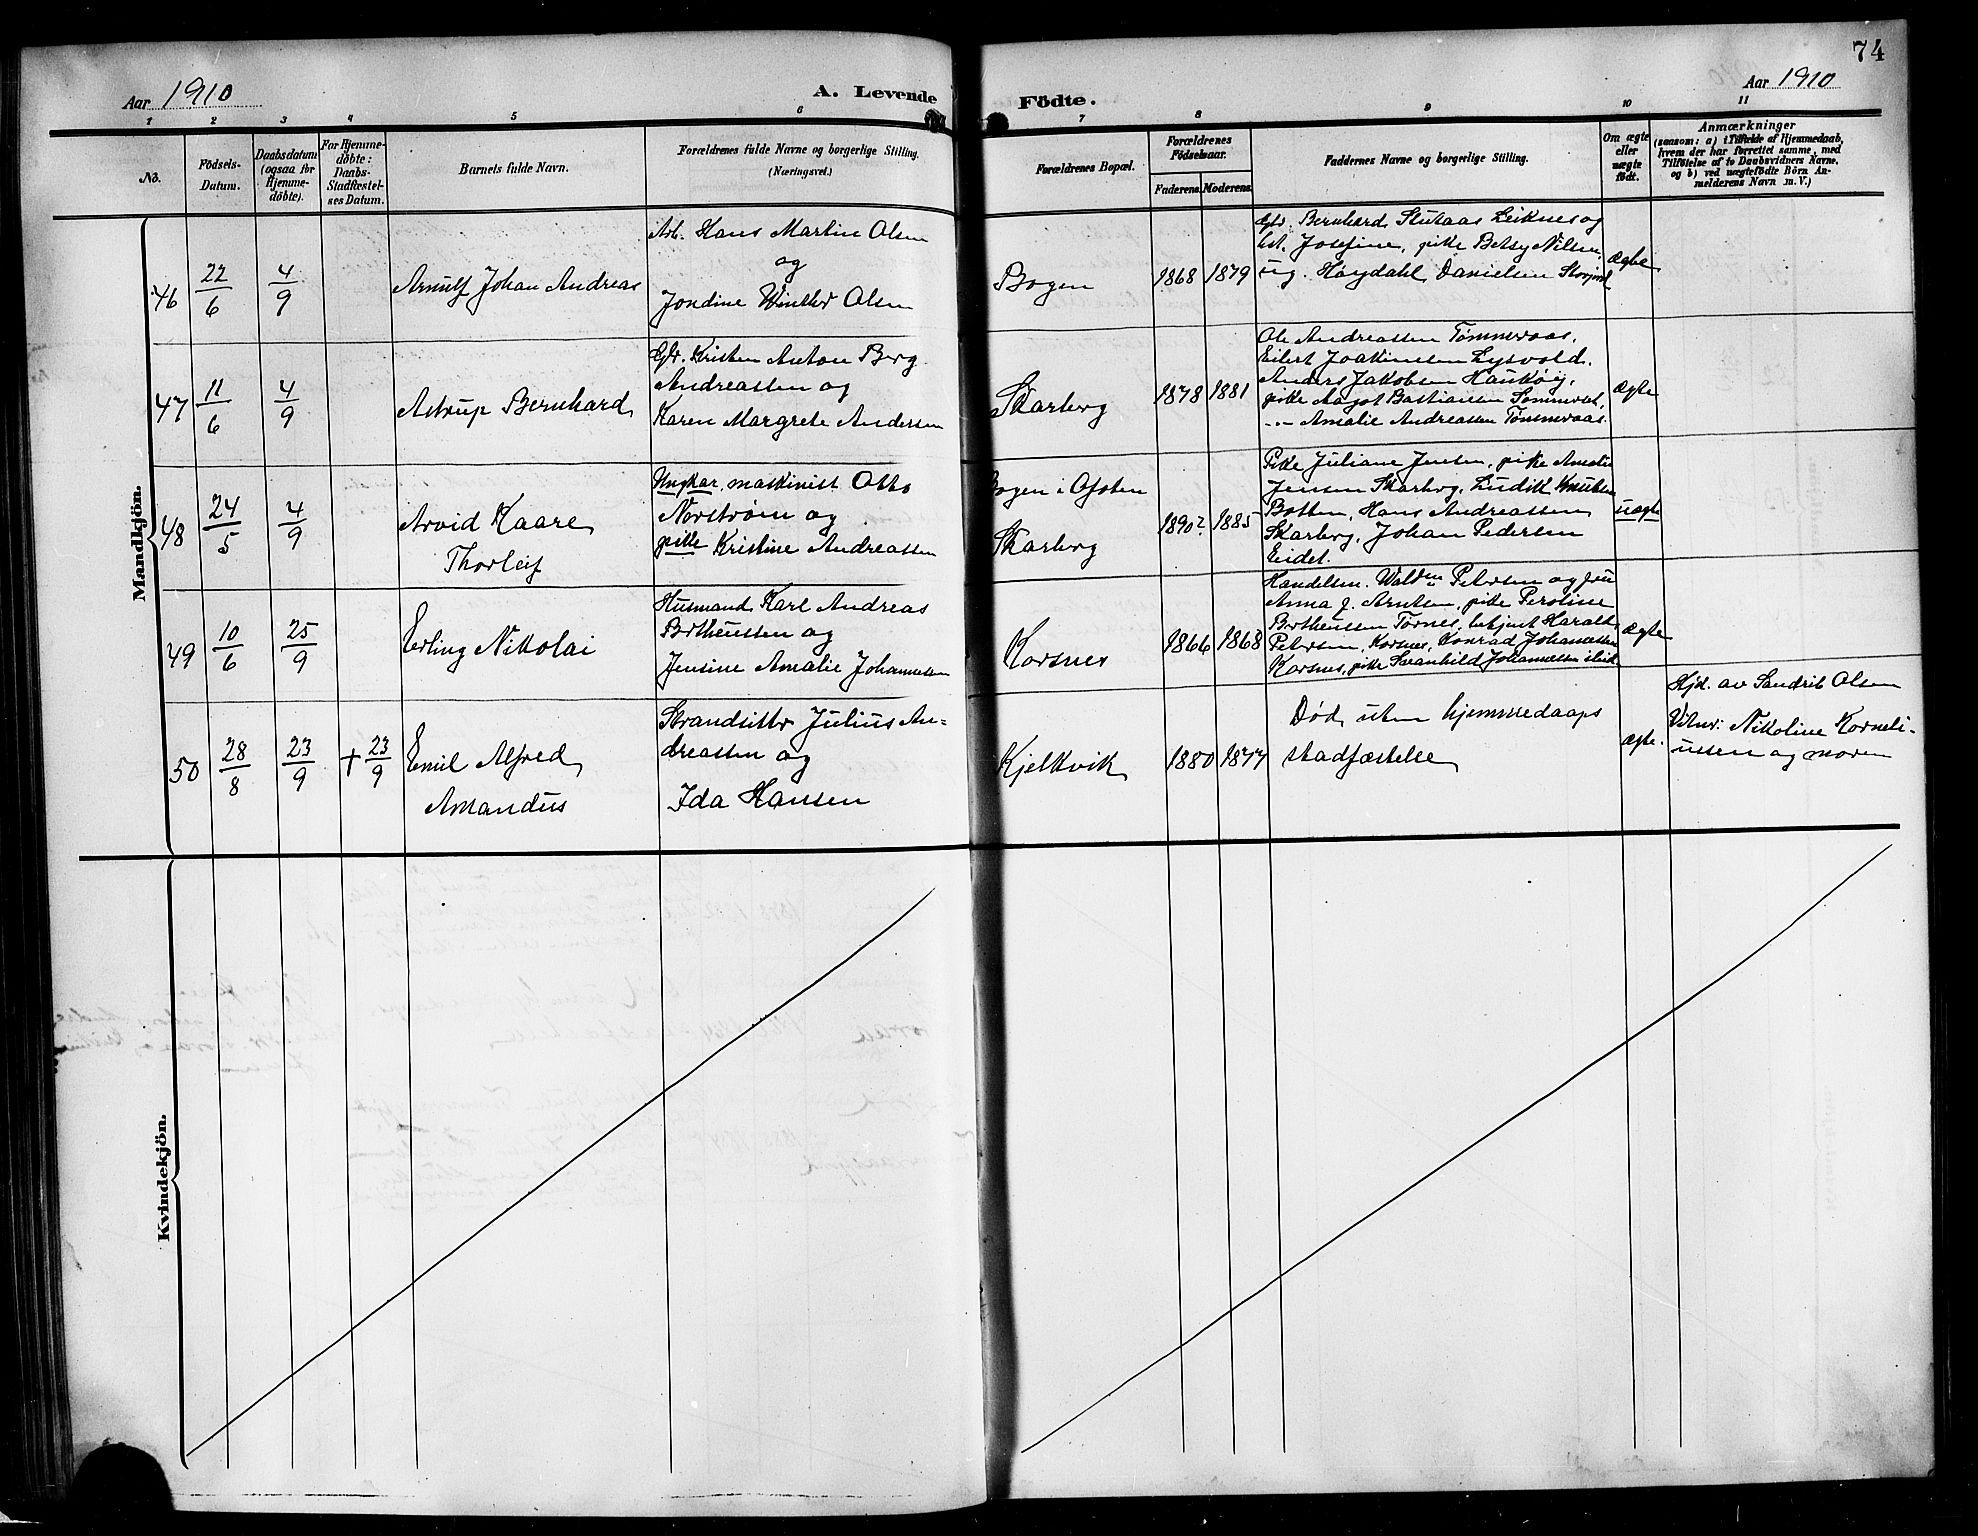 74
Aar 1910
A. Levende Födte.
Aar 1910
1 2 3 4 5 6 7 8 9 10 11
No.
Födsels-
Datum.
Daabsdatum
(ogsaa for
Hjemme-
døbte).
For Hjemme-
døbte:
Daabs-
Stadfæstel-
ses Datum.
Barnets fulde Navn.
Forældrenes fulde Navne og borgerlige Stilling.
(Næringsvei.)
Forældrenes Bopæl.
Forældrenes
Födselsaar.
Faderens. Moderens.
Faddernes Navne og borgerlige Stilling.
Om ægte
eller
uægte
født.
Anmærkninger
(saasom: a) i Tilfælde af Hjemmedaab,
hvem der har forrettet samme, med
Tilföielse af to Daabsvidners Navne,
og b) ved uægtefödte Börn An-
melderens Navn m. V.)
Mandkjön.
46
22/6
4/9
Arnulf Johan Andreas
Arb. Hans Martin Olsen
og
Jondine Winther Olsen
Bogen
1868 1879
Bernhard Leiknes og
Josefine, pike Betsy Nilsen,
ug. Høydahl Danielsen
Ægte
47
11/6
4/9
Astrup Bernhard
Kristen Anton Berg
Andreassen og
Karen Margrete Andersen
Skarberg
1878 1881
Ole Andreassen Tømmeraas,
Eilert Joakimsen Lysvold.
Anders Jakobsen Haukøy,
pike Aagot Bastiansen Sommerset,
-"- Amalie Andreassen Tømmeraas.
Ægte
48
24/5
4/9
Arvid Kaare
Thorleif
Ungkar, maskinist Otto
Norstrøm og
pike Kristine Andreassen
Bogen i Ofoten
Skarberg
1890? 1885
Pike Juliane Jensen, pike Amalie
Jensen Skarberg, Ludik Knutsen
Botten, Hans Andreassen
Skarberg, Johan Pedersen
Eidet.
uægte
49
10/6
25/9
Erling Nikolai
Husmand Karl Andreas
Bertheussen og
Jensine Amalie Johannessen
Korsnes
1866 1868
Handelsm. Waldm Petersen og fru
Anna J. Arntsen, pike Peroline
Bertheussen Tørnes, Harald
Petersen, Korsnes, Konrad Johannessen
Korsnes, pike Svanhild Johannessen
Ægte
50
28/8
23/9
+ 23/9
Emil Alfred
Amandus
Strandsitter Julius An=
dreassen og
Ida Hansen
Kjelkvik
1880 1877
Død uten hjemmedaaps
stadfæstelse
ægte.
Hjd. av Sandrik Olsen
Vitner: Nikoline Korneli-
ussen og moren
Kvindekjön.